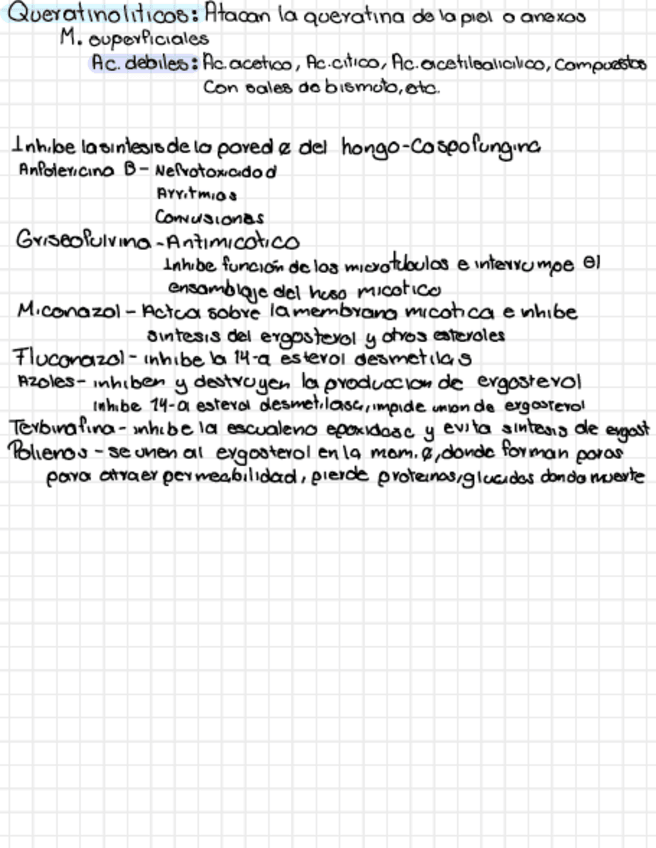 Queratinoliticos: Atacan la queratina de la piel o anexos
M. superficiales
Ac. debiles: Ac. acetico, Ac. citico, Ac. acetilsalicilico, Compuestos
Con sales de bismuto, etc.
Inhibe la sintesis de la pared ȼ del hongo-Caspofungina
Anfotericina B - Nefrotoxicidad
Arritmias
Convusiones
Griseofulvina - Antimicotico
Inhibe función de los microtubulos e interrumpe el
ensamblaje del huso micotico
Miconazol - Actua sobre la membrana micotica e inhibe
sintesis del ergosterol y otros esteroles
Fluconazol - inhibe la 14-a esterol desmetilas
Azoles - inhiben y destruyen la produccion de ergosterol
inhibe 14-a esterol desmetilasa, impide union de ergosterol
Terbinafina - inhibe la escualeno epoxidasa y evita sintesis de ergost
Polienos - se unen al ergosterol en la mem. ȼ, donde forman poros
para atraer permeabilidad, pierde proteinas, glucidos dando muerte